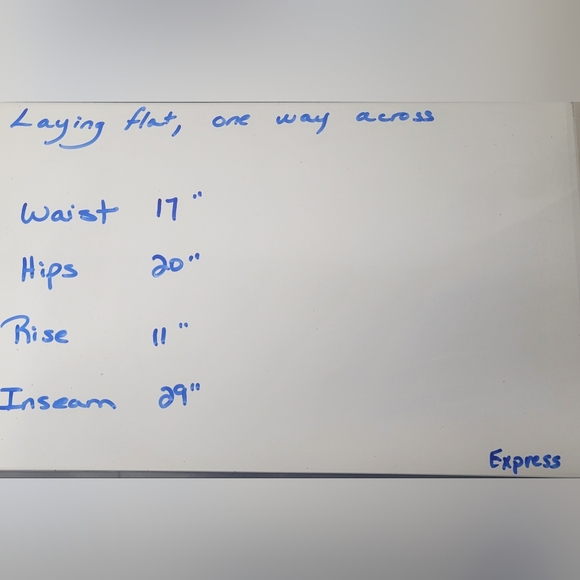 Laying flat, one way across
Waist 17"
Hips 20"
Rise 11"
Inseam 29"
Express